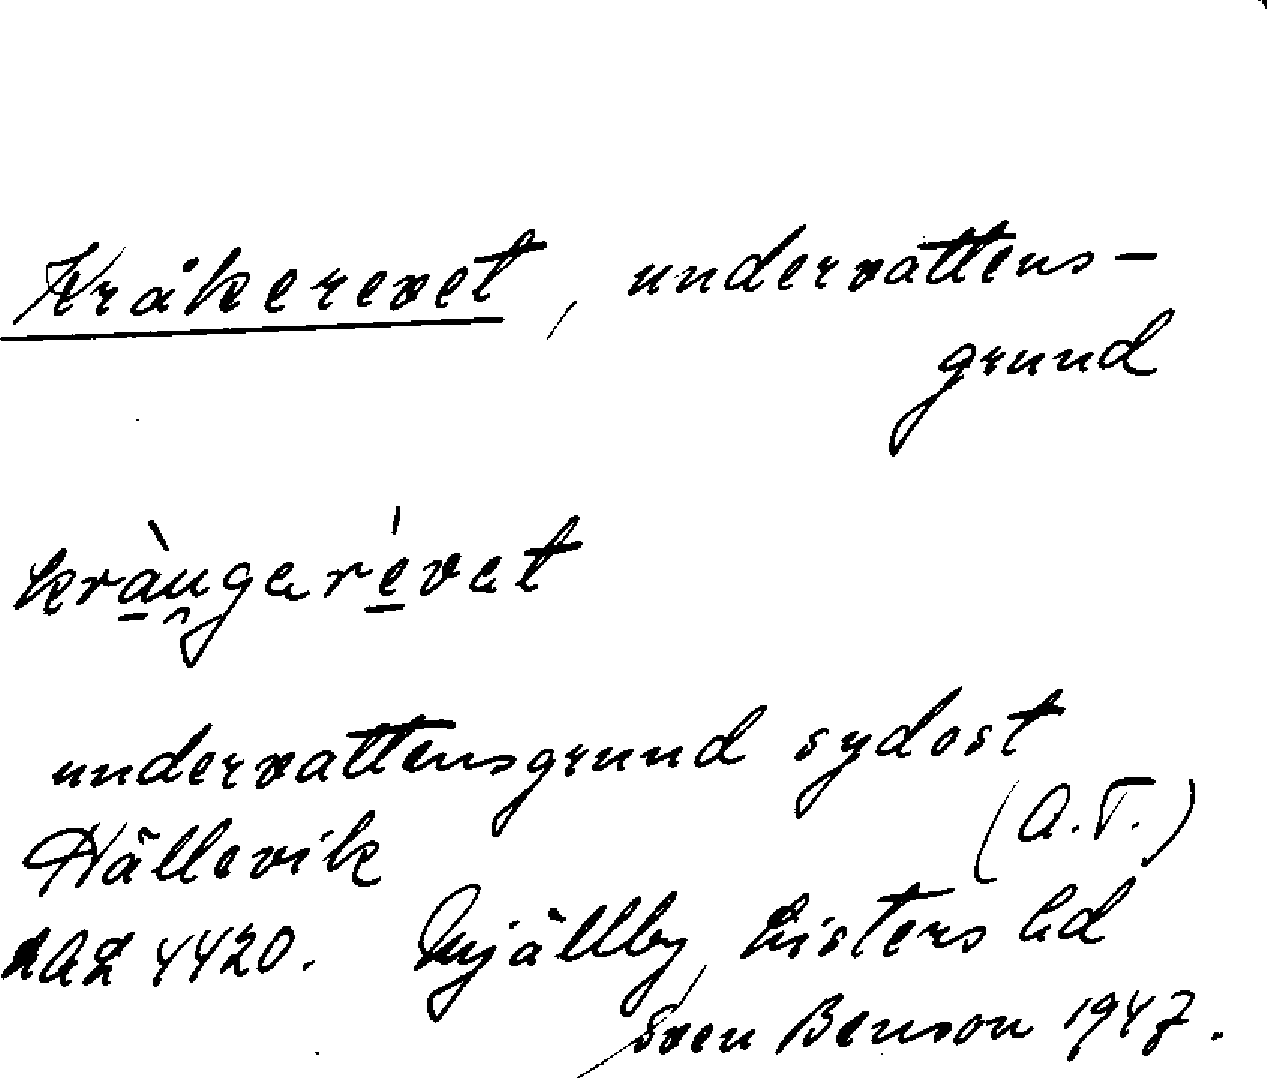 Kråkerevet, undervattens-
grund
kràu̯garévet
undervattensgrund sydost
Hällevik (A.T.)
LAL 4420. Mjällby, Listers hd
Sven Benson 1947.